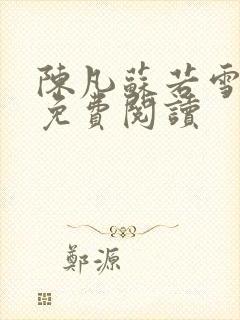 陳凡蘇若雪
免費閱讀
鄭源